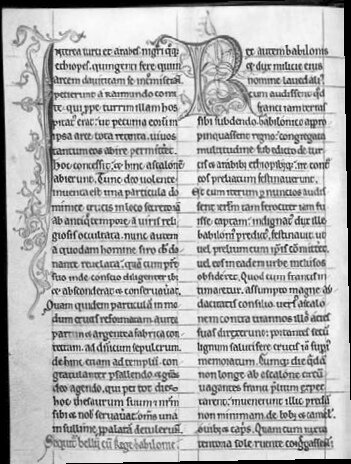 Interea turci et arabes nigriq;
ethiopes. quingenti fere. qui in
arcem daviticam se
a Raimundo comi
te. quippe turrim illam hos
pitat' erat. ut pecunia eorum in
ipsa arce tota retenta. vivos
tantum eos abire permitteret.
hoc concessit. et hinc ascalone
abierunt. Tunc deo volente
inventa est una particula do
minice crucis in loco secretario
ab antiq tempore a viris reli
giosis occultata. nunc autem
a quodam homine siro
nante revelata. qui cum patre
suo inde conscio diligenter ibi
et absconderat et conservaverat.
Quam quidem particulam in mo
dum crucis reformatam. aurea
partim et argentea fabrica con
tectam. ad dominicum sepulcrum.
dehinc etiam ad templum con
gratulanter psallendo et gratias
deo agendo. qui per tot dies
hoc thesaurum suum
sibi et nobis servaverat. omnes una
in sublime propalata detulerunt.
Sequit' bellum cum Rege babilonie.
Rex autem babilonis
et dux milicie eius
nomine lavedalius
cum audissent qd
franci iam terras
sibi subdendo. babilonico appro
pinquassent regno. congregata
multitudine sub edicto de tur
cis et arabis ethiopibusq;
eos preliatum festinaverunt.
Et cum iterum per nuncios audis
sent. iherusalem tam ferociter iam fu
isse captam. indignat' dux ille
babiloni predictus. festinavit. ut
vel prelium cum ipsis committeret.
vel eos in eadem urbe inclusos
obsideret. Quod cum franci
timarent. assumpto magne au
dacitatis consilio. versus ascalo
nem contra tirannos illos acies
suas direxerunt. portantes secum
lignum salutifere crucis
memoratum. Cumque die quadam
non longe ab escalone circum
vagantes franci prelium expec
tarent. invenerunt illic predam
non minimam. de bobus et camelis.
ovibus et capris. Quam cum iuxta
tentoria sole ruente congregassent.